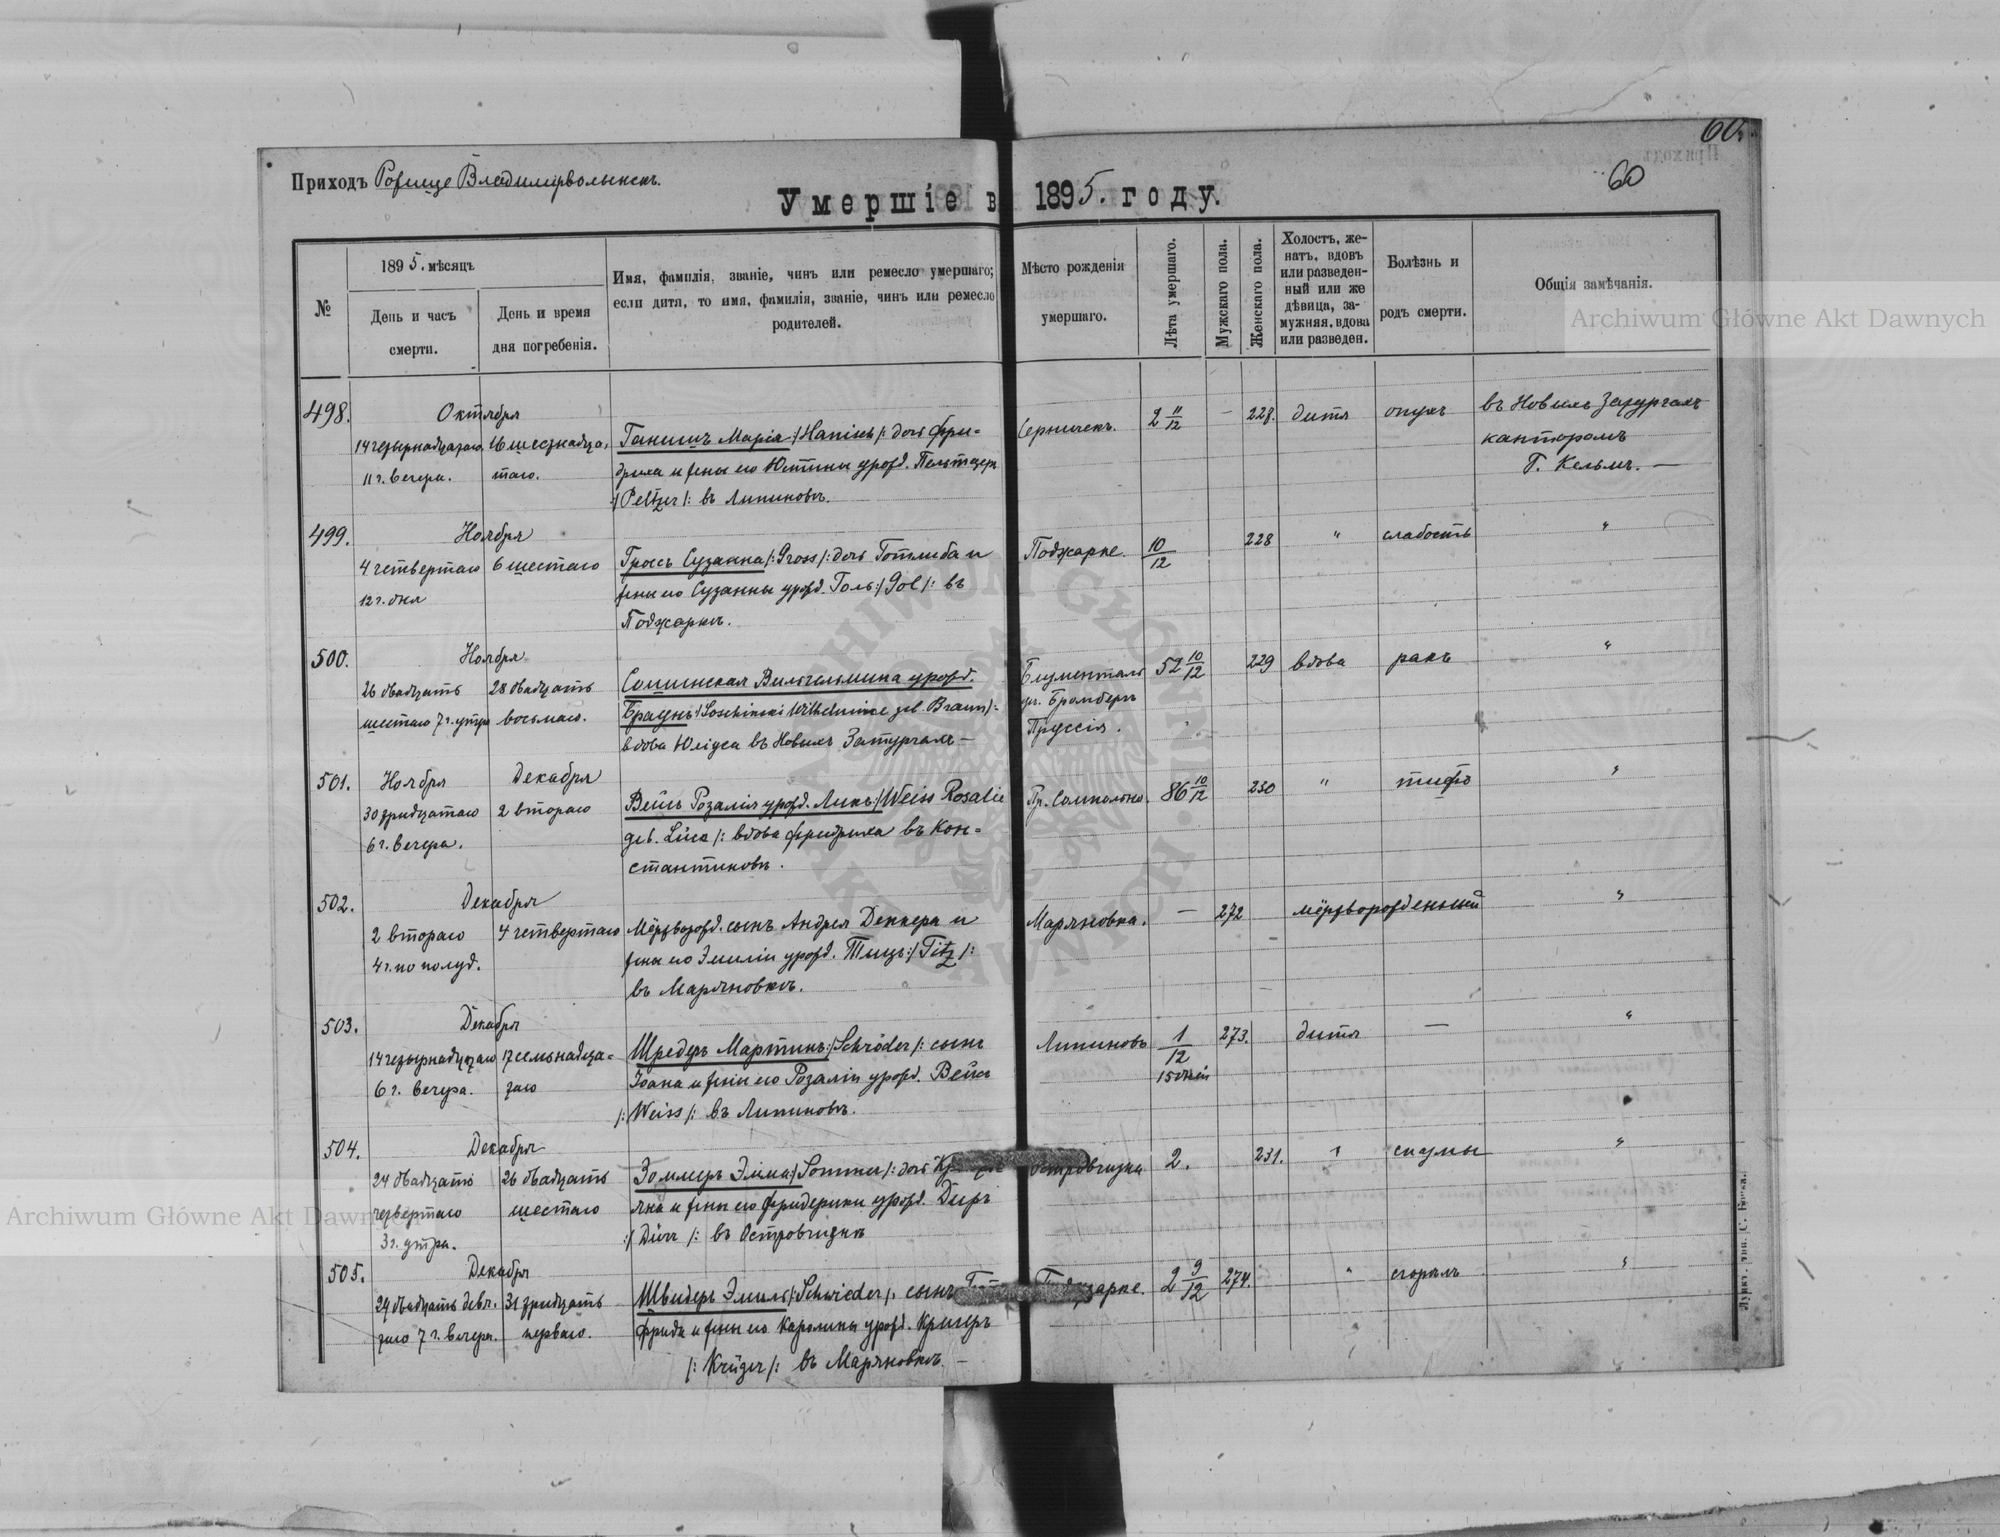 60.
Приходъ Рожище Владимірволынскъ.
60
Умершіе в 1895. году.
№
1895. мѣсяцъ
День и часъ
смерти.
День и время
дня погребенія.
Имя, фамилія, званіе, чинъ или ремесло умершаго;
если дитя, то имя, фамилія, званіе, чинъ или ремесло
родителей.
Мѣсто рожденія
умершаго.
Лѣта умершаго.
Мужскаго пола.
Женскаго пола.
Холостъ, же-
натъ, вдовъ
или разведен-
ный или же
дѣвица, за-
мужняя, вдова
или разведен.
Болѣзнь и
родъ смерти.
Общія замѣчанія.
Archiwum Główne Akt Dawnych
498.
Октября
14 четырнадцатаго
11 ч. вечера.
16 шестнадца,
таго.
Ганишъ Марія /: Hanisch /: дочь Фри-
дриха и жены его Юстины урожд. Пельтцеръ
:/ Peltzer /: въ Липиновѣ.
Серничек.
2 11/12
—
228.
дитя
опухъ
въ Новыхъ Затурцахъ
канторомъ
Г. Кельмъ. —
499.
Ноября
4 четвертаго
12 ч. дня
6 шестаго
Гроссъ Сузанна /: Gross /: дочь Готлиба и
жены его Сузанны урожд. Голь :/ Gol /: въ
Поджаркѣ.
Поджарке.
10/12
228
"
слабость
"
500.
Ноября
26 двадцать
шестаго 7 ч. утра
28 двадцать
восьмаго.
Сошинская Вильгельмина урожд.
Браунъ /: Soschinski Wilhelmine geb. Braun /:
вдова Юліуса въ Новыхъ Затурцахъ —
Блументаль
Бромбергъ
Пруссія.
52 10/12
229
вдова
ракъ
"
501.
Ноября
30 тридцатаго
6 ч. вечера.
Декабря
2 втораго
Вейсъ Розалія урожд. Ликъ :/ Weiss Rosalie
geb. Lück /: вдова Фридриха въ Кон-
стантиновѣ.
Пр. Сомпольно.
86 10/12
230
"
тифъ
"
502.
Декабря
2 втораго
4 ч. по полуд.
4 четвертаго
Мёртворожд. сынъ Андрея Деккера и
жены его Эмиліи урожд. Тицъ :/ Titz /:
въ Маряновкѣ.
Маряновка.
—
272
мёртворожденный
"
503.
Декабря
14 четырнадцатаго
6 ч. вечера.
17 семьнадца=
таго
Шредеръ Мартинъ :/ Schröder /: сынъ
Іоана и жены его Розаліи урожд. Вейсъ
/: Weiss /: въ Липиновѣ.
Липиновъ
1/12
15 дней
273.
дитя
—
"
504.
Декабря
24 двадцать
четвертаго
3 ч. утра.
26 двадцать
шестаго
Зоммеръ Эмма :/ Sommer /: дочь
яна и жены его Фридерики урожд. Диръ
:/ Dürr /: въ Островчизнѣ
Островчизна
2.
231.
"
"
505.
Декабря
29 двадцать девя.
таго 7 ч. вечера.
31 тридцать
перваго.
Швидеръ Эмиль /: Schwieder /: сынъ
фрида и жены его Каролины урожд. Кригеръ
/: Krüger /: въ Маряновкѣ. —
Поджарке.
2 9/12
274.
"
сгорѣлъ
"
Archiwum Główne Akt Dawnych
ARCHIWUM GŁÓWNE AKT DAWNYCH